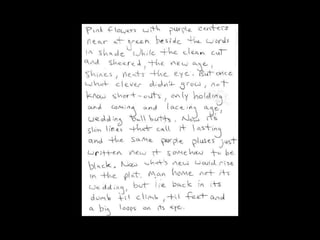 Pink flowers with purple centers
near at green beside the words
in shade while the clean cut
and sheared, the new age,
shines, neats the eye. But once
what clever didn't grow, not
know short-cuts, only holding
and coming and lacking age,
wedding ball butts. Now its
slim lines that call it lasting
and the same purple pluses just
written new it somehow to be
black. Now what's new would rise
in the plot. Man home not its
wedding, but lie back in its
dumb til climb, til feet and
a big loops on its eye.